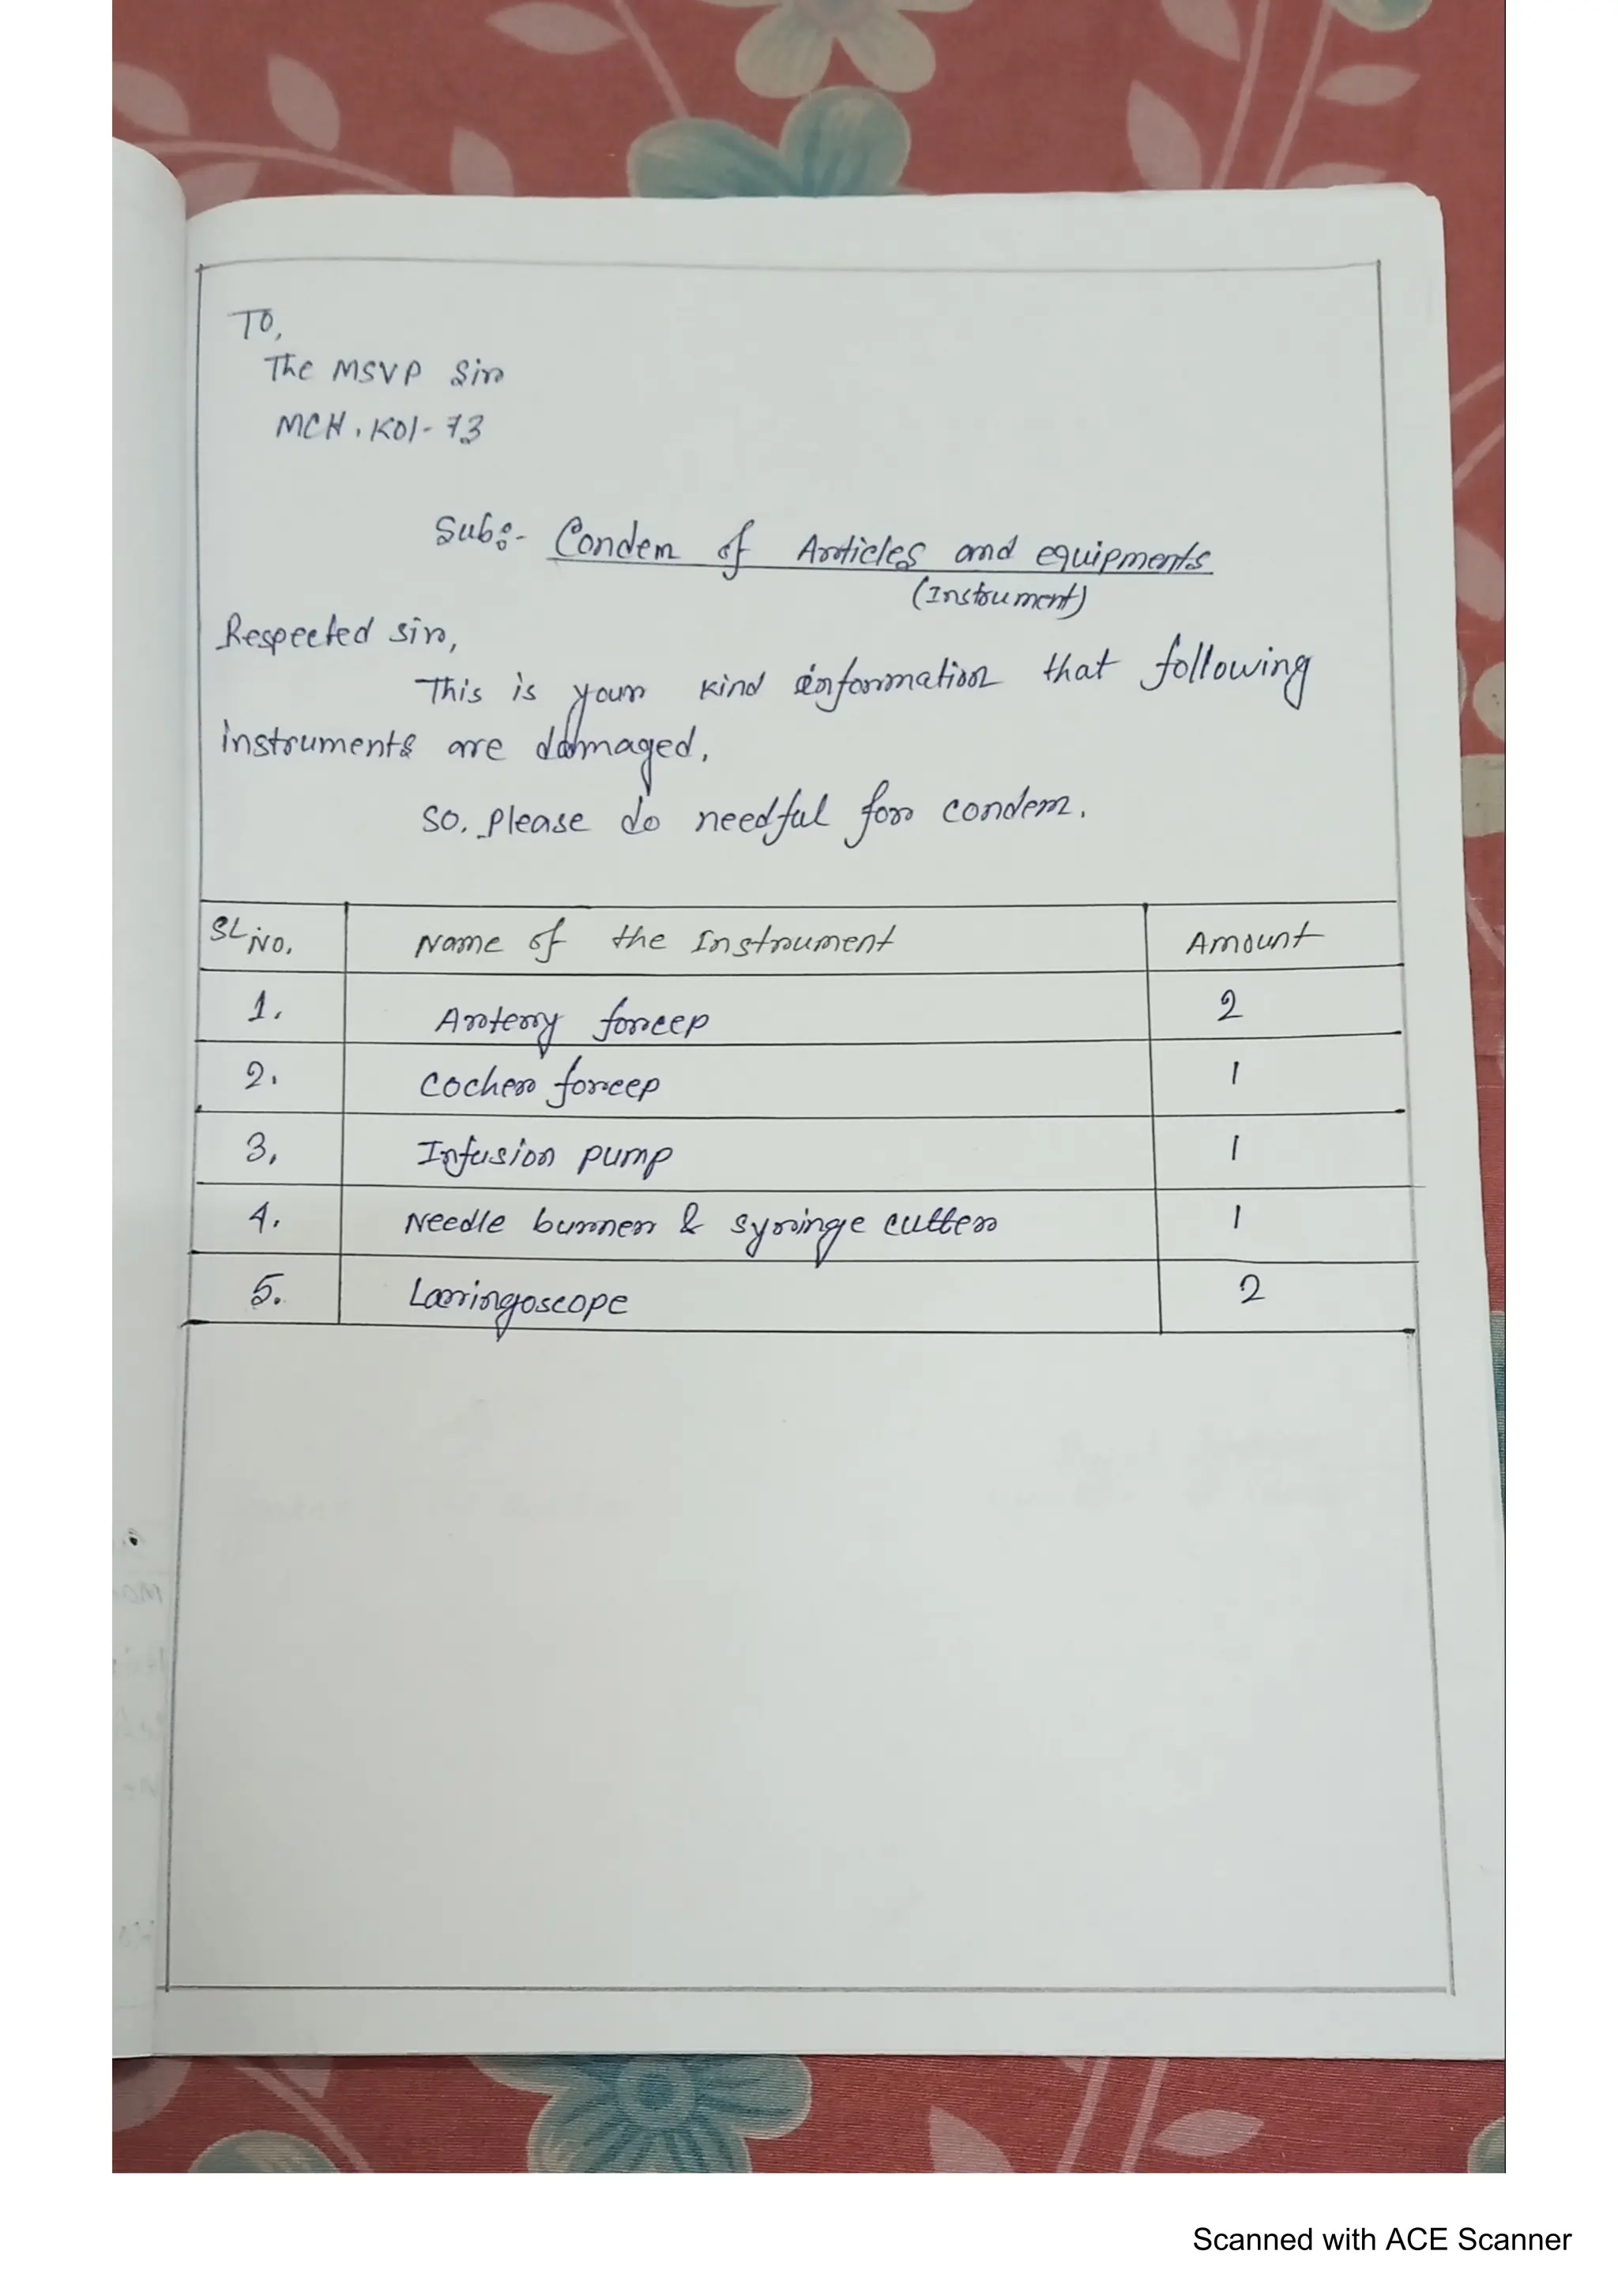 To,
The MSVP Sir
MCH, Kol-73
Sub:- Condem of Articles and equipments
(Instrument)
Respected sir,
This is your kind information that following
instruments are damaged.
So, please do needful for condem.
SL No. Name of the Instrument Amount
1. Artery forcep 2
2. Cocher forcep 1
3. Infusion pump 1
4. Needle burner & syringe cutter 1
5. Laringoscope 2
Scanned with ACE Scanner